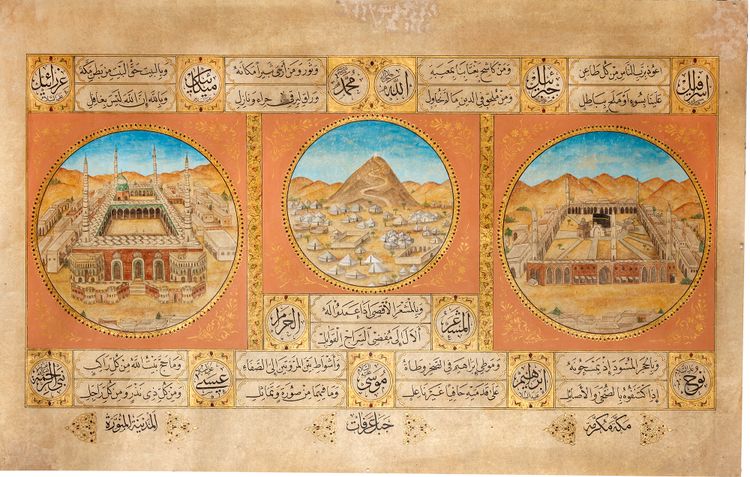 إسرافيل
أعوذ برب الناس من كل طاعن
علينا بسوء أو ملح بباطل
جبرائيل
ومن كاشح يعتابنا بمعيبة
ومن ملحق في الدين ما لم نحاول
الله
محمد
وثور ومن أرسى ثبيرا مكانه
وراق لبر في حراء ونازل
ميكائيل
وبالبيت حق البيت من بطن مكة
وبالله إن الله ليس بغافل
عزرائيل
المشعر
وبالمشعر الأقصى إذا عمدوا له
ألال إلى مفضى الشراج القوابل
الحرام
نوح
وبالحجر المسود إذ يمسحونه
إذا اكتنفوه بالضحى والأصائل
إبراهيم
وموطئ إبراهيم في الصخر وطأة
على قدميه حافيا غير ناعل
موسى
وأشواط بين المروتين إلى الصفا
وما فيهما من صورة وتماثل
عيسى
ومن حج بيت الله من كل راكب
ومن كل ذي نذر ومن كل راجل
نبي الرحمة
مكة مكرمة
جبل عرفات
المدينة المنورة